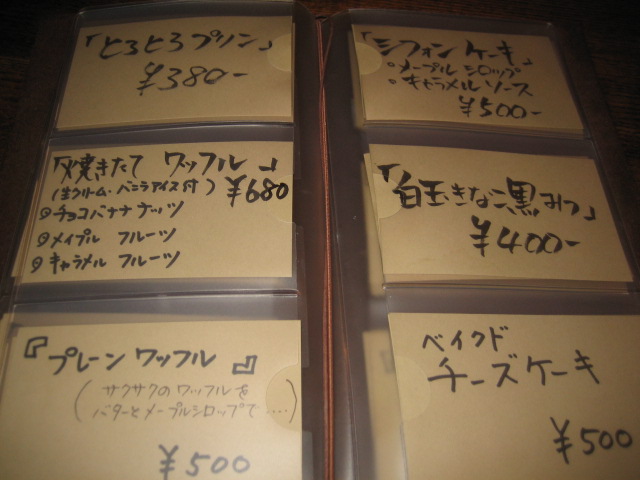 「とろとろプリン」
¥380-
「焼きたて ワッフル」
(生クリーム・バニラアイス付) ¥680
チョコバナナナッツ
メイプル フルーツ
キャラメル フルーツ
『プレーン ワッフル』
(サクサクのワッフルを
バターとメープルシロップで....)
¥500
「シフォン ケーキ」
・メープル シロップ
・キャラメル ソース
¥500-
「白玉きなこ黒みつ」
¥400-
ベイクド
チーズケーキ
¥500